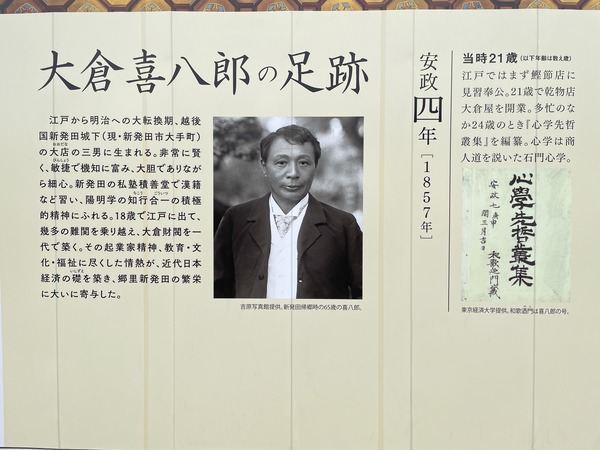 大倉喜八郎の足跡
江戸から明治への大転換期、越後
国新発田城下（現・新発田市大手町）
の大店の三男に生まれる。非常に賢
おおだな
く、敏捷で機知に富み、大胆でありなが
びんしょう
ら細心。新発田の私塾積善堂で漢籍
など習い、陽明学の知行合一の積極
ちこう ごういつ
的精神にふれる。18歳で江戸に出て、
幾多の難関を乗り越え、大倉財閥を一
代で築く。その起業家精神、教育・文
化・福祉に尽くした情熱が、近代日本
経済の礎を築き、郷里新発田の繁栄
いしずえ
に大いに寄与した。
吉原写真館提供。新発田帰郷時の65歳の喜八郎。
安政四年［1857年］
当時21歳（以下年齢は数え歳）
江戸ではまず鰹節店に
見習奉公。21歳で乾物店
大倉屋を開業。多忙のな
か24歳のとき『心学先哲
叢集』を編纂。心学は商
人道を説いた石門心学。
心學先哲叢集
安政七庚申
閏三月吉日
和歌廼門蔵
東京経済大学提供。和歌廼門は喜八郎の号。